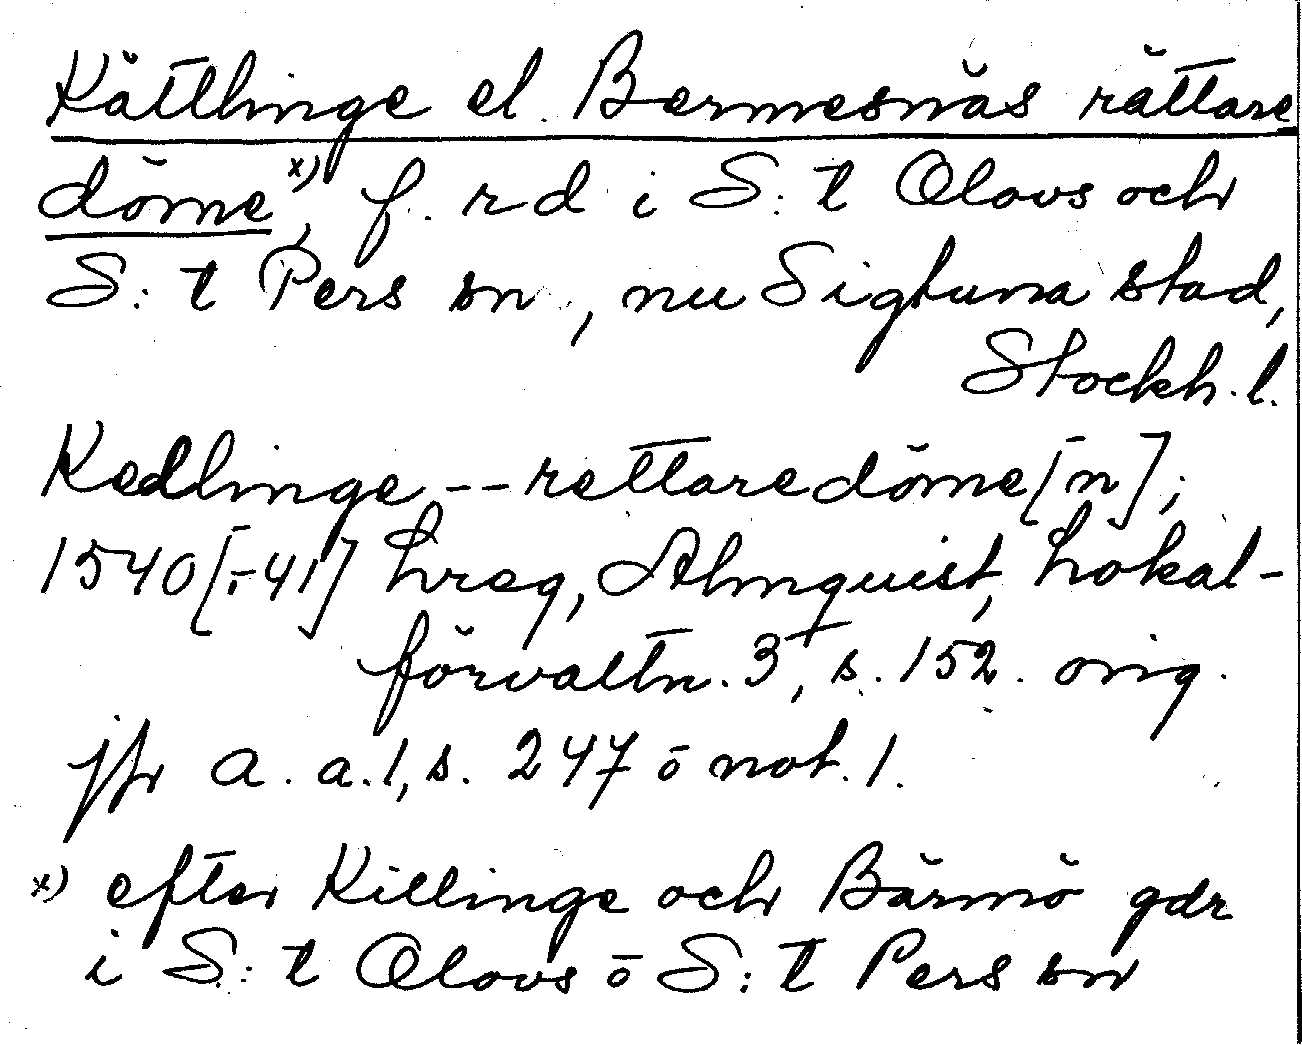 Kättlinge el. Bermesnäs rättare
döme x), f. rd i S:t Olovs och
S:t Pers sn, nu Sigtuna stad,
Stockh. l.
Kedlinge -- rettaredöme[n];
1540[-41] hreg, Almquist, Lokal-
förvaltn. 3, s. 152. orig.
jfr a. a. 1, s. 247 o not. 1.
x) efter Killinge och Bärmö gdr
i S:t Olovs o S:t Pers sn